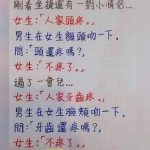 剛看坐捷運有一對小情侶…
女生:「人家頭疼。」
男生在女生額頭吻一下,
問:「頭還疼嗎?」
女生:「不疼了。」
過了一會兒…
女生:「人家牙齒疼。」
男生在女生臉頰吻一下.
問:「牙齒還疼嗎?」
女生:「不疼了.」